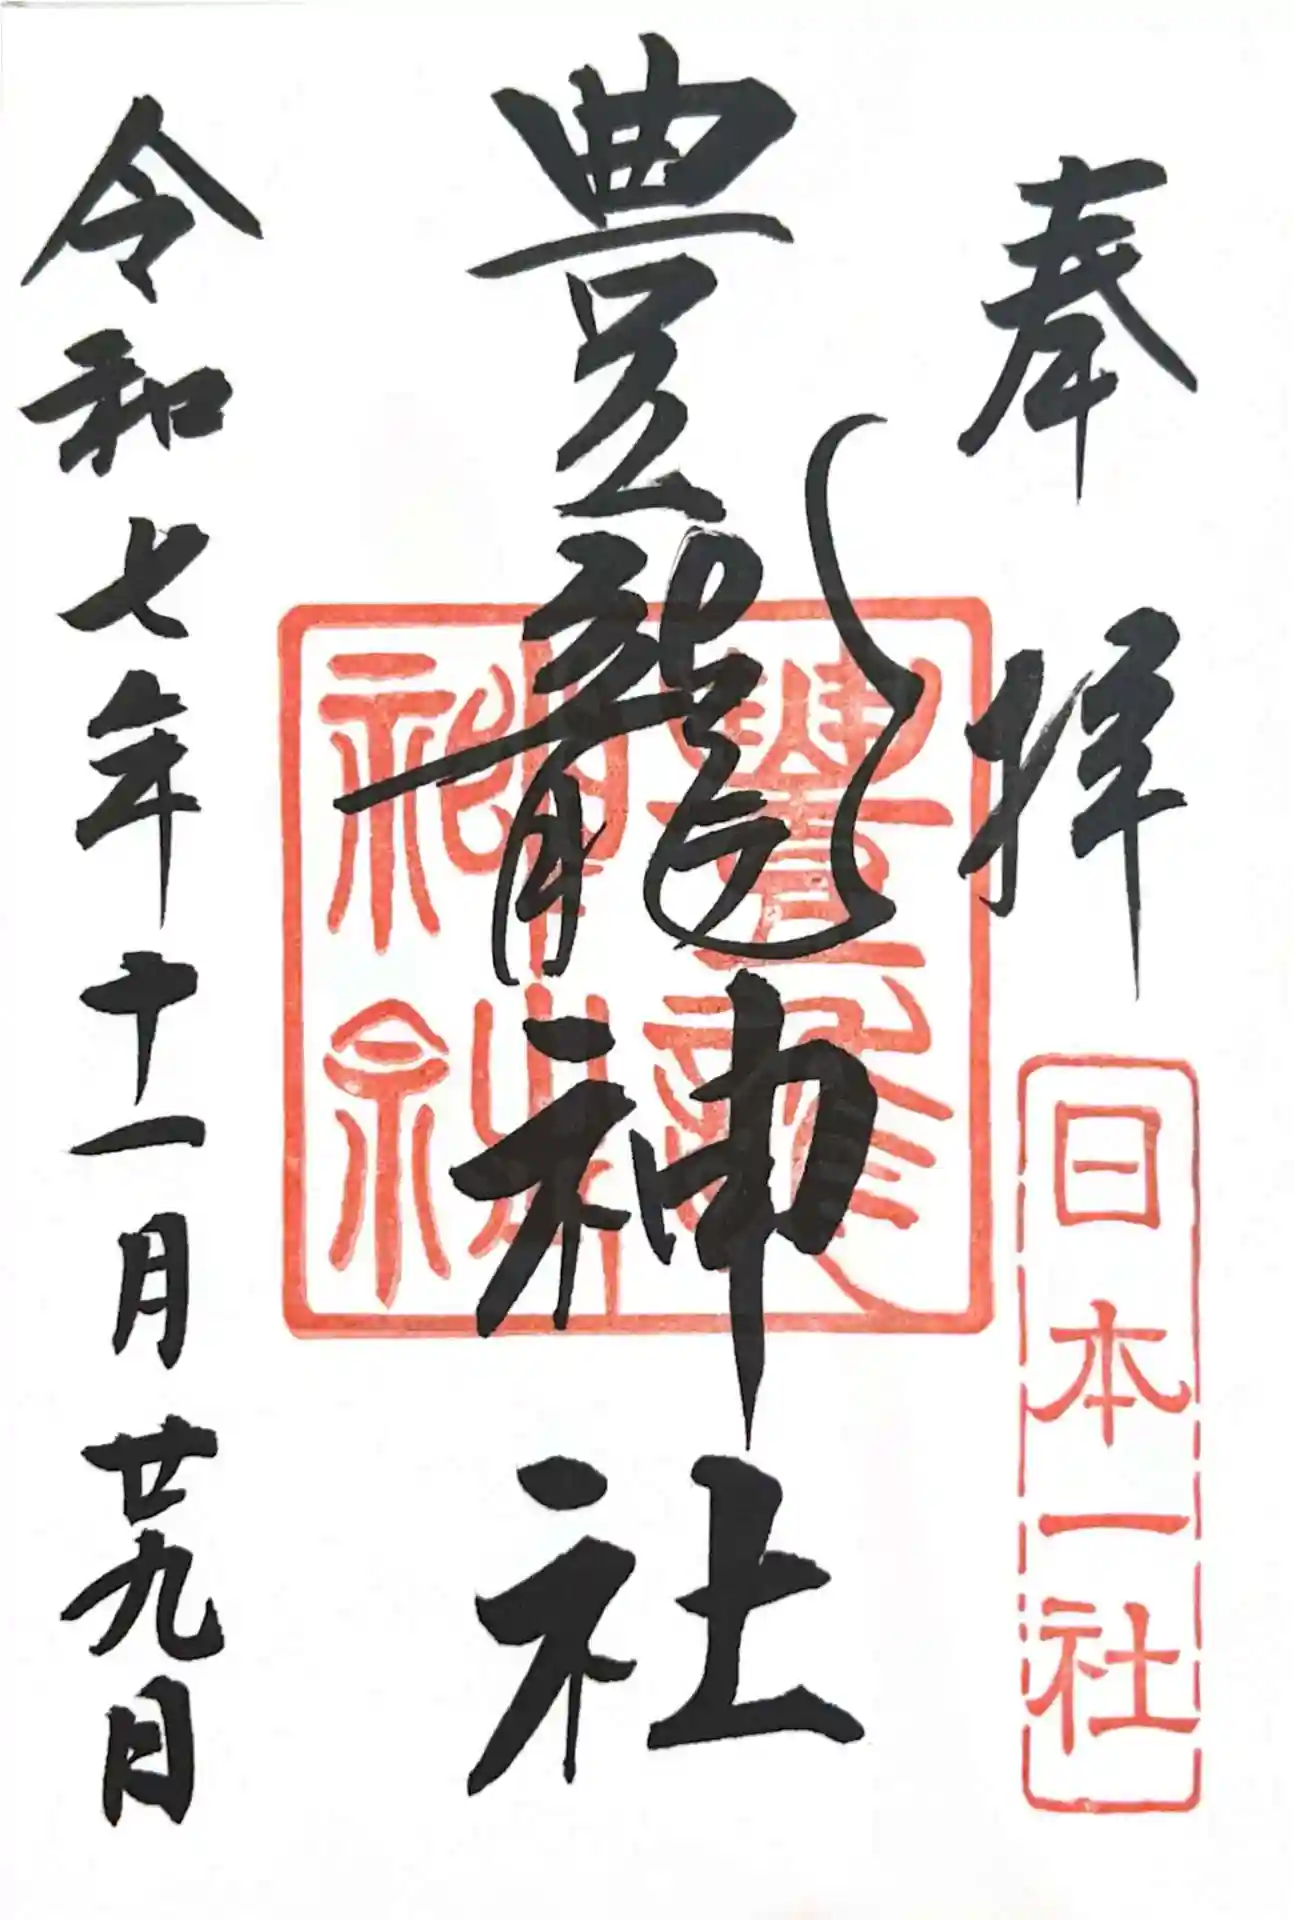 奉拝
日本一社
豊龍神社
豊龍神社
令和七年十一月廿九日